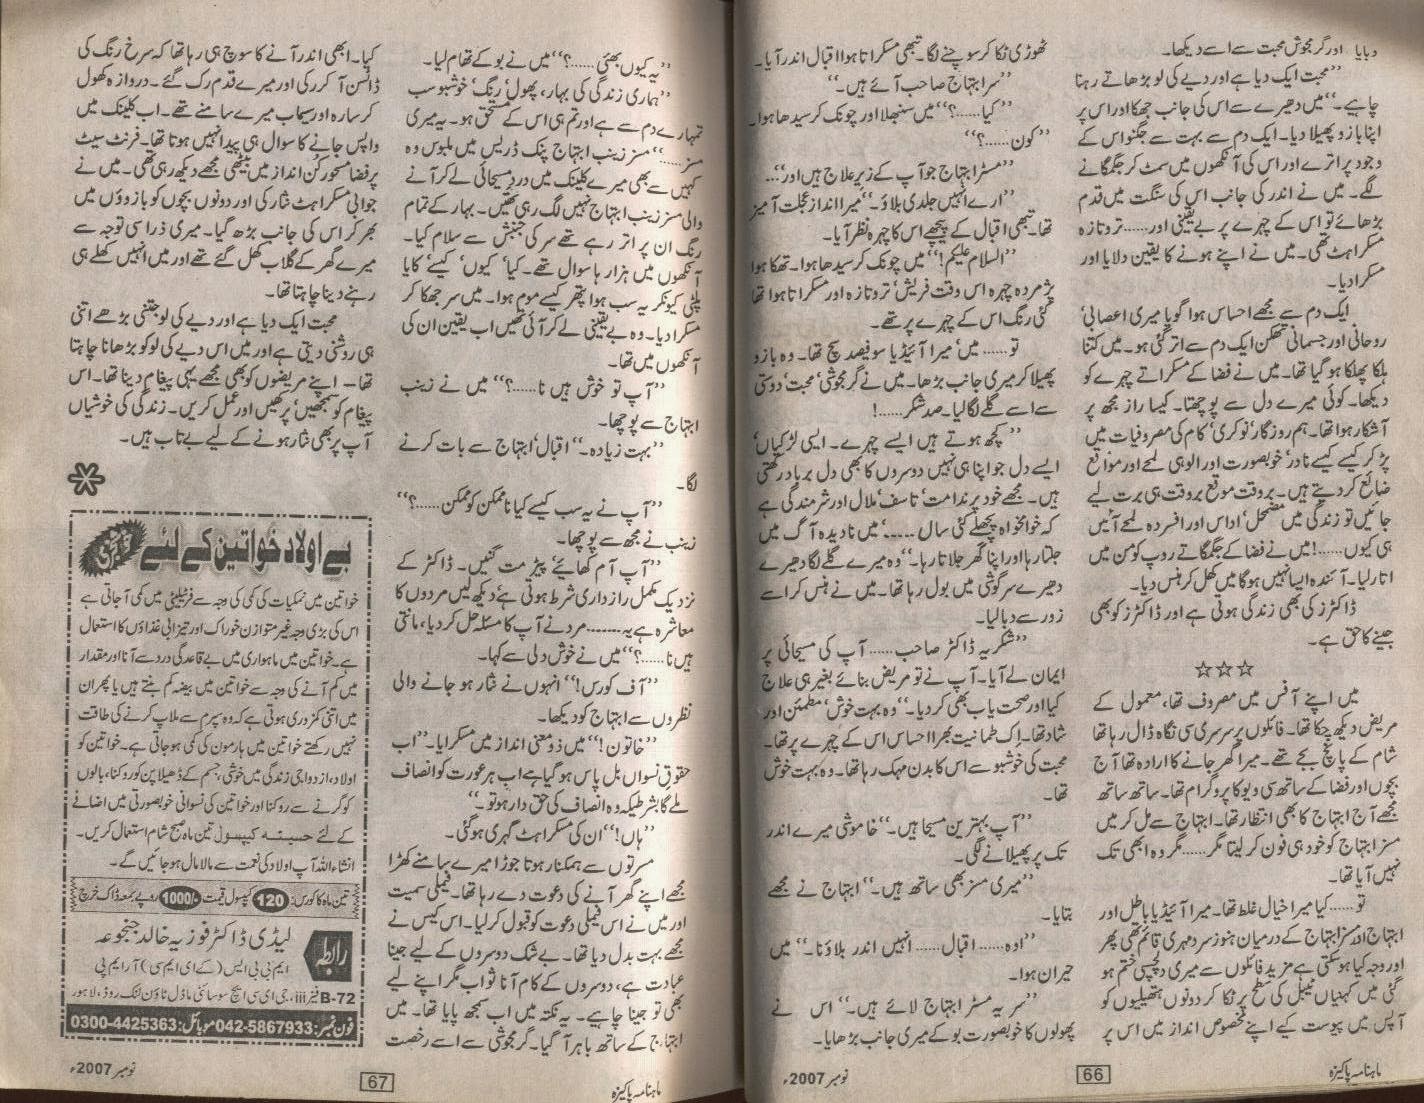 دبایا اور گرمجوش محبت سے اسے دیکھا۔
”محبت ایک دیا ہے اور دیے کی لو بڑھاتے رہنا
چاہیے۔“ میں دھیرے سے اس کی جانب جھکا اور اس پر
اپنا بازو پھیلا دیا۔ ایک دم سے بہت سے جگنو اس کے
وجود پر اترے اور اس کی آنکھوں میں سمٹ کر جگمگانے
لگے۔ میں نے اندر کی جانب اس کی سنگت میں قدم
بڑھائے تو اس کے چہرے پر بے یقینی اور...... تروتازہ
مسکراہٹ تھی۔ میں نے اپنے ہونے کا یقین دلایا اور
مسکرا دیا۔
ایک دم سے مجھے احساس ہوا گویا میری اعصابی‘
روحانی اور جسمانی تھکن ایک دم سے اتر گئی ہو۔ میں کتنا
ہلکا پھلکا ہو گیا تھا۔ میں نے فضا کے مسکراتے چہرے کو
دیکھا۔ کوئی میرے دل سے پوچھتا۔ کیسا راز مجھ پر
آشکار ہوا تھا۔ ہم روزگار‘ نوکری‘ کام کی مصروفیات میں
پڑ کر کیسے کیسے نادر‘ خوبصورت اور الوہی لمحے اور مواقع
ضائع کر دیتے ہیں۔ بروقت موقع بروقت ہی برت لیے
جائیں تو زندگی میں مضمحل‘ اداس اور افسردہ لمحے آئیں
ہی کیوں......! میں نے فضا کے جگمگاتے روپ کو من میں
اتار لیا۔ آئندہ ایسا نہیں ہوگا میں کھل کر ہنس دیا۔
ڈاکٹرز کی بھی زندگی ہوتی ہے اور ڈاکٹرز کو بھی
جینے کا حق ہے۔
☆☆☆
میں اپنے آفس میں مصروف تھا، معمول کے
مریض دیکھ چکا تھا۔ فائلوں پر سرسری سی نگاہ ڈال رہا تھا
شام کے پانچ بجے تھے۔ میرا گھر جانے کا ارادہ تھا آج
بچوں اور فضا کے ساتھ سی ویو کا پروگرام تھا۔ ساتھ ساتھ
مجھے آج ابتہاج کا بھی انتظار تھا۔ ابتہاج سے مل کر میں
مسز ابتہاج کو خود ہی فون کر لیتا مگر...... مگر وہ ابھی تک
نہیں آیا تھا۔
تو...... کیا میرا خیال غلط تھا۔ میرا آئیڈیا باطل اور
ابتہاج اور مسز ابتہاج کے درمیان ہنوز سرد مہری قائم تھی پھر
اور وجہ کیا ہو سکتی ہے مزید فائلوں سے میری دلچسپی ختم ہو
گئی میں کہنیاں ٹیبل کی سطح پر ٹکا کر دونوں ہتھیلیوں کو
آپس میں پیوست کیے اپنے مخصوص انداز میں اس پر
ٹھوڑی ٹکا کر سوچنے لگا۔ تبھی مسکراتا ہوا اقبال اندر آیا۔
”سر ابتہاج صاحب آئے ہیں۔“
”کیا......؟“ میں سنبھلا اور چونک کر سیدھا ہوا۔
”کون......؟“
”مسٹر ابتہاج جو آپ کے زیر علاج ہیں اور“...
”ارے انہیں جلدی بلاؤ۔“ میرا انداز عجلت آمیز
تھا۔ تبھی اقبال کے پیچھے اس کا چہرہ نظر آیا۔
”السلام علیکم!“ میں چونک کر سیدھا ہوا۔ تھکا ہوا
پژمردہ چہرہ اس وقت فریش‘ تروتازہ اور مسکراتا ہوا تھا
کئی رنگ اس کے چہرے پر تھے۔
تو...... میں‘ میرا آئیڈیا سو فیصد سچ تھا۔ وہ بازو
پھیلا کر میری جانب بڑھا۔ میں نے گرمجوشی‘ محبت‘ دوستی
سے اسے گلے لگا لیا۔ صد شکر......!
”کچھ ہوتے ہیں ایسے چہرے۔ ایسی لڑکیاں‘
ایسے دل جو اپنا ہی نہیں دوسروں کا بھی دل برباد رکھتی
ہیں۔ مجھے خود پر ندامت‘ تاسف‘ ملال اور شرمندگی ہے
کہ خوامخواہ پچھلے کئی سال ..... میں نادیدہ آگ میں
جلتا رہا اور اپنا گھر جلاتا رہا۔“ وہ میرے گلے لگا دھیرے
دھیرے سرگوشی میں بول رہا تھا۔ میں نے ہنس کر اسے
زور سے دبا لیا۔
”شکریہ ڈاکٹر صاحب...... آپ کی مسیحائی پر
ایمان لے آیا۔ آپ نے تو مریض بنائے بغیر ہی علاج
کیا اور صحت یاب بھی کر دیا۔“ وہ بہت خوش‘ مطمئن اور
شاد تھا۔ اک طمانیت بھرا احساس اس کے چہرے پر تھا۔
محبت کی خوشبو سے اس کا بدن مہک رہا تھا۔ وہ بہت خوش
تھا۔
”آپ بہترین مسیحا ہیں۔“ خاموشی میرے اندر
تک پر پھیلانے لگی۔
”میری مسز بھی ساتھ ہیں۔“ ابتہاج نے مجھے
بتایا۔
”اوہ...... اقبال...... انہیں اندر بلاؤ نا۔“ میں
حیران ہوا۔
”سر یہ مسٹر ابتہاج لائے ہیں۔“ اس نے
پھولوں کا خوبصورت بوکے میری جانب بڑھایا۔
ماہنامہ پاکیزہ
66
نومبر 2007ء
”یہ کیوں بھئی......؟“ میں نے بوکے تھام لیا۔
”ہماری زندگی کی بہار، پھول‘ رنگ‘ خوشبو سب
تمہارے دم سے ہے اور تم ہی اس کے مستحق ہو۔ یہ میری
مسز......“ مسز زینب ابتہاج پنک ڈریس میں ملبوس وہ
کہیں سے بھی میرے کلینک میں درد مسیحائی لے کر آنے
والی مسز زینب ابتہاج نہیں لگ رہی تھیں۔ بہار کے تمام
رنگ ان پر اتر رہے تھے سر کی جنبش سے سلام کیا۔
آنکھوں میں ہزارہا سوال تھے۔ کیا‘ کیوں‘ کیسے‘ کایا
پلٹی کیونکر یہ سب ہوا پتھر کیسے موم ہوا۔ میں سر جھکا کر
مسکرا دیا۔ وہ بے یقینی لے کر آئی تھیں اب یقین ان کی
آنکھوں میں تھا۔
”آپ تو خوش ہیں نا......؟“ میں نے زینب
ابتہاج سے پوچھا۔
”بہت زیادہ۔“ اقبال ابتہاج سے بات کرنے
لگا۔
”آپ نے یہ سب کیسے کیا ناممکن کو ممکن......؟“
زینب نے مجھ سے پوچھا۔
”آپ آم کھائیے پیڑ مت گنیں۔ ڈاکٹر کے
نزدیک مکمل رازداری شرط ہوتی ہے‘ دیکھ لیں مردوں کا
معاشرہ ہے یہ....... مرد نے آپ کا مسئلہ حل کر دیا، مانتی
ہیں نا......؟“ میں نے خوش دلی سے کہا۔
”آف کورس!“ انہوں نے نثار ہو جانے والی
نظروں سے ابتہاج کو دیکھا۔
”خاتون!“ میں ذومعنی انداز میں مسکرایا۔ ”اب
حقوق نسواں بل پاس ہو گیا ہے اب ہر عورت کو انصاف
ملے گا بشرطیکہ وہ انصاف کی حق دار ہو تو۔“
”ہاں!“ ان کی مسکراہٹ گہری ہو گئی۔
مسرتوں سے ہمکنار ہوتا جوڑا میرے سامنے کھڑا
مجھے اپنے گھر آنے کی دعوت دے رہا تھا۔ فیملی سمیت
اور میں نے اس فیملی دعوت کو قبول کر لیا۔ اس کیس نے
مجھے بہت بدل دیا تھا۔ بے شک دوسروں کے لیے جینا
عبادت ہے، دوسروں کے کام آنا ثواب مگر اپنے لیے
بھی تو جینا چاہیے۔ یہ نکتہ میں اب سمجھ پایا تھا۔ میں
ابتہاج کے ساتھ باہر آ گیا۔ گرمجوشی سے اسے رخصت
کیا۔ ابھی اندر آنے کا سوچ ہی رہا تھا کہ سرخ رنگ کی
ڈاٹسن آ کر رکی اور میرے قدم رک گئے۔ دروازہ کھول
کر سارہ اور سیحاب میرے سامنے تھے۔ اب کلینک میں
واپس جانے کا سوال ہی پیدا نہیں ہوتا تھا۔ فرنٹ سیٹ
پر فضا مسحور کن انداز میں بیٹھی مجھے دیکھ رہی تھی۔ میں نے
جوابی مسکراہٹ نثار کی اور دونوں بچوں کو بازوؤں میں
بھر کر اس کی جانب بڑھ گیا۔ میری ذرا سی توجہ سے
میرے گھر کے گلاب کھل گئے تھے اور میں انہیں کھلے ہی
رہنے دینا چاہتا تھا۔
محبت ایک دیا ہے اور دیے کی لو جتنی بڑھے اتنی
ہی روشنی دیتی ہے اور میں اس دیے کی لو کو بڑھانا چاہتا
تھا۔ اپنے مریضوں کو بھی مجھے یہی پیغام دینا تھا۔ اس
پیغام کو سمجھیں‘ پرکھیں اور عمل کریں۔ زندگی کی خوشیاں
آپ پر بھی نثار ہونے کے لیے بے تاب ہیں۔
بے اولاد خواتین کے لئے
خواتین میں نمکیات کی کمی کی وجہ سے فرٹیلیٹی میں کمی آ جاتی ہے
اس کی بڑی وجہ غیر متوازن خوراک اور تیزابی غذاؤں کا استعمال
ہے۔ خواتین میں ماہواری میں بے قاعدگی درد سے آنا اور مقدار
میں کم آنے کی وجہ سے خواتین میں بیضہ کم بنتے ہیں یا پھر ان
میں اتنی کمزوری ہوتی ہے کہ وہ سپرم سے ملاپ کرنے کی طاقت
نہیں رکھتے خواتین میں ہارمون کی کمی ہو جاتی ہے۔ خواتین کو
اولاد، ازدواجی زندگی میں خوشی، جسم کے ڈھیلا پن کو روکنا، بالوں
کو گرنے سے روکنا اور خواتین کی نسوانی خوبصورتی میں اضافے
کے لئے حسینہ کیپسول تین ماہ صبح شام استعمال کریں۔
انشاء اللہ آپ اولاد کی نعمت سے مالا مال ہو جائیں گے۔
تین ماہ کا کورس: 120 کیپسول قیمت 1000/ روپے بمعہ ڈاک خرچ
رابطہ لیڈی ڈاکٹر فوزیہ خالد جنجوعہ
ایم بی بی ایس (کے ای ایم سی) آر ایم پی
B-72 فیز iii، جی ای سی ایچ سوسائٹی ماڈل ٹاؤن لنک روڈ، لاہور
فون نمبر: 042-5867933 موبائل: 0300-4425363
ماہنامہ پاکیزہ
67
نومبر 2007ء